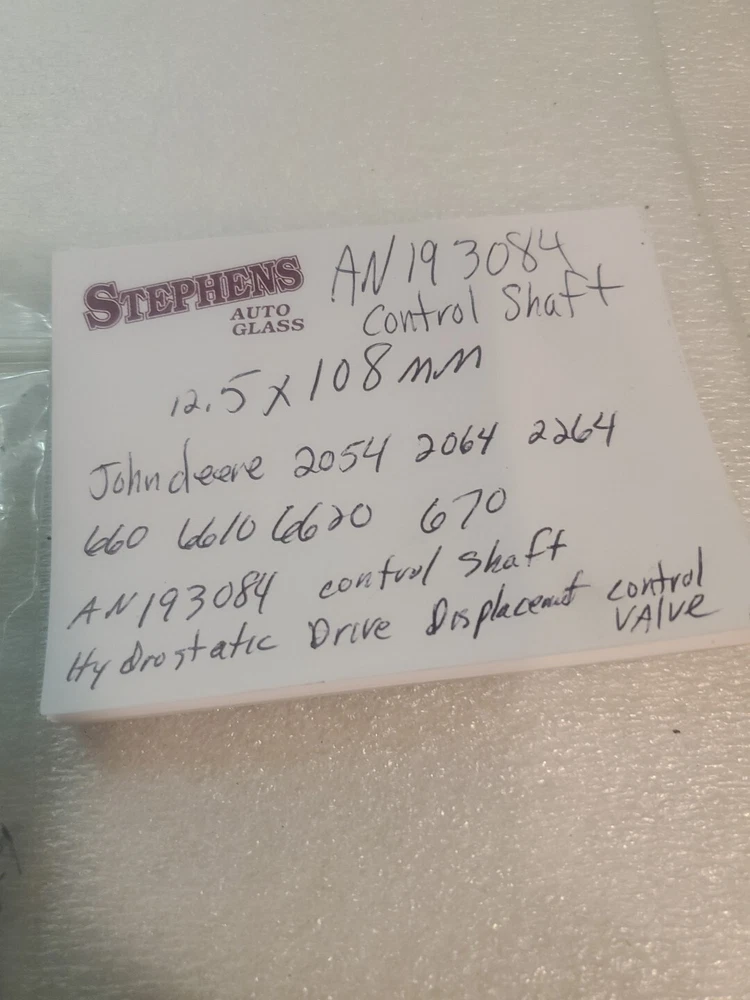 STEPHENS
AUTO
GLASS
AN193084
Control Shaft
12.5 x 108 mm
John deere 2054 2064 2264
660 6610 6620 670
AN193084 control shaft
Hydrostatic Drive Displacemnt control
VAlve